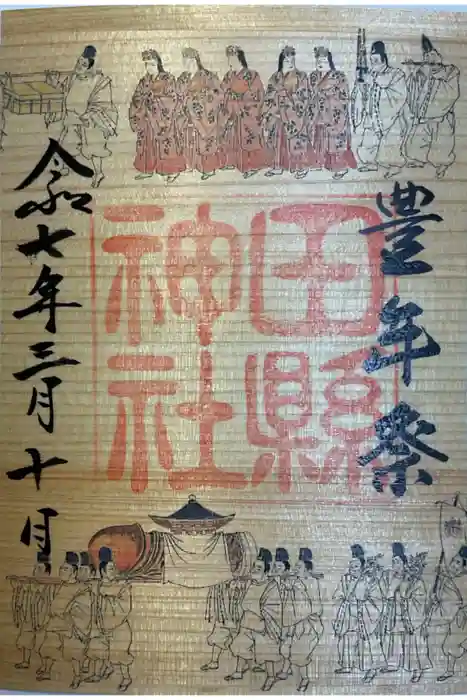 豊年祭
田縣
神社
令和七年三月十日